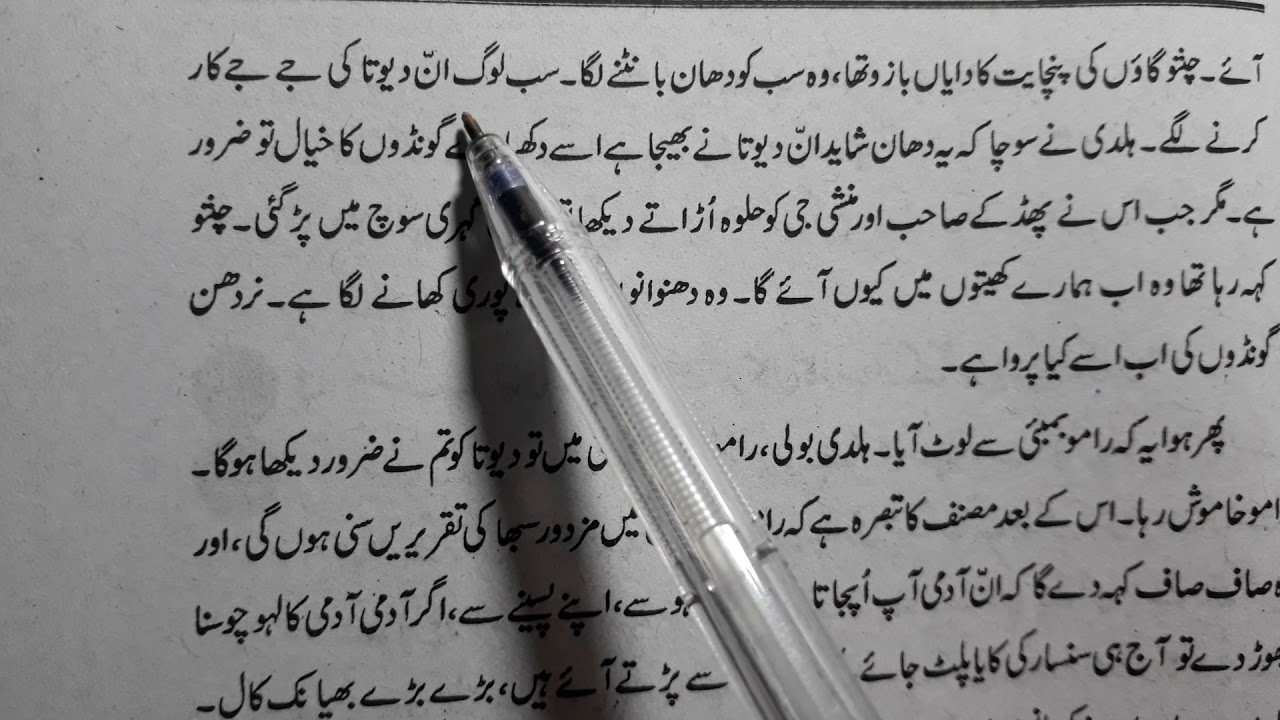 آئے۔ چنتو گاؤں کی پنچایت کا دایاں بازو تھا، وہ سب کو دھان بانٹنے لگا۔ سب لوگ انّ دیوتا کی جے جے کار
کرنے لگے۔ ہلدی نے سوچا کہ یہ دھان شاید انّ دیوتا نے بھیجا ہے اسے دکھ گونڈوں کا خیال تو ضرور
ہے۔ مگر جب اس نے پھڈ کے صاحب اور منشی جی کو حلوہ اُڑاتے دیکھا گہری سوچ میں پڑ گئی۔ چنتو
کہہ رہا تھا وہ اب ہمارے کھیتوں میں کیوں آئے گا۔ وہ دھنوانو پوری کھانے لگا ہے۔ نردھن
گونڈوں کی اب اسے کیا پروا ہے۔
پھر ہوا یہ کہ رامو بمبئی سے لوٹ آیا۔ ہلدی بولی، رامو میں تو دیوتا کو تم نے ضرور دیکھا ہوگا۔
امو خاموش رہا۔ اس کے بعد مصنف کا تبصرہ ہے کہ را میں مزدور سبھا کی تقریریں سنی ہوں گی، اور
صاف صاف کہہ دے گا کہ انّ آدمی آپ اُپجاتا ہو سے، اپنے پسینے سے، اگر آدمی آدمی کا لہو چوسنا
ھوڑ دے تو آج ہی سنسار کی کایا پلٹ جائے سے پڑتے آئے ہیں، بڑے بڑے بھیانک کال۔